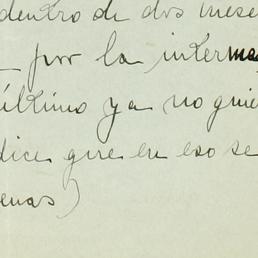 dentro de dos mese
por la interme
último ya no quie
dice que en eso se
enas)